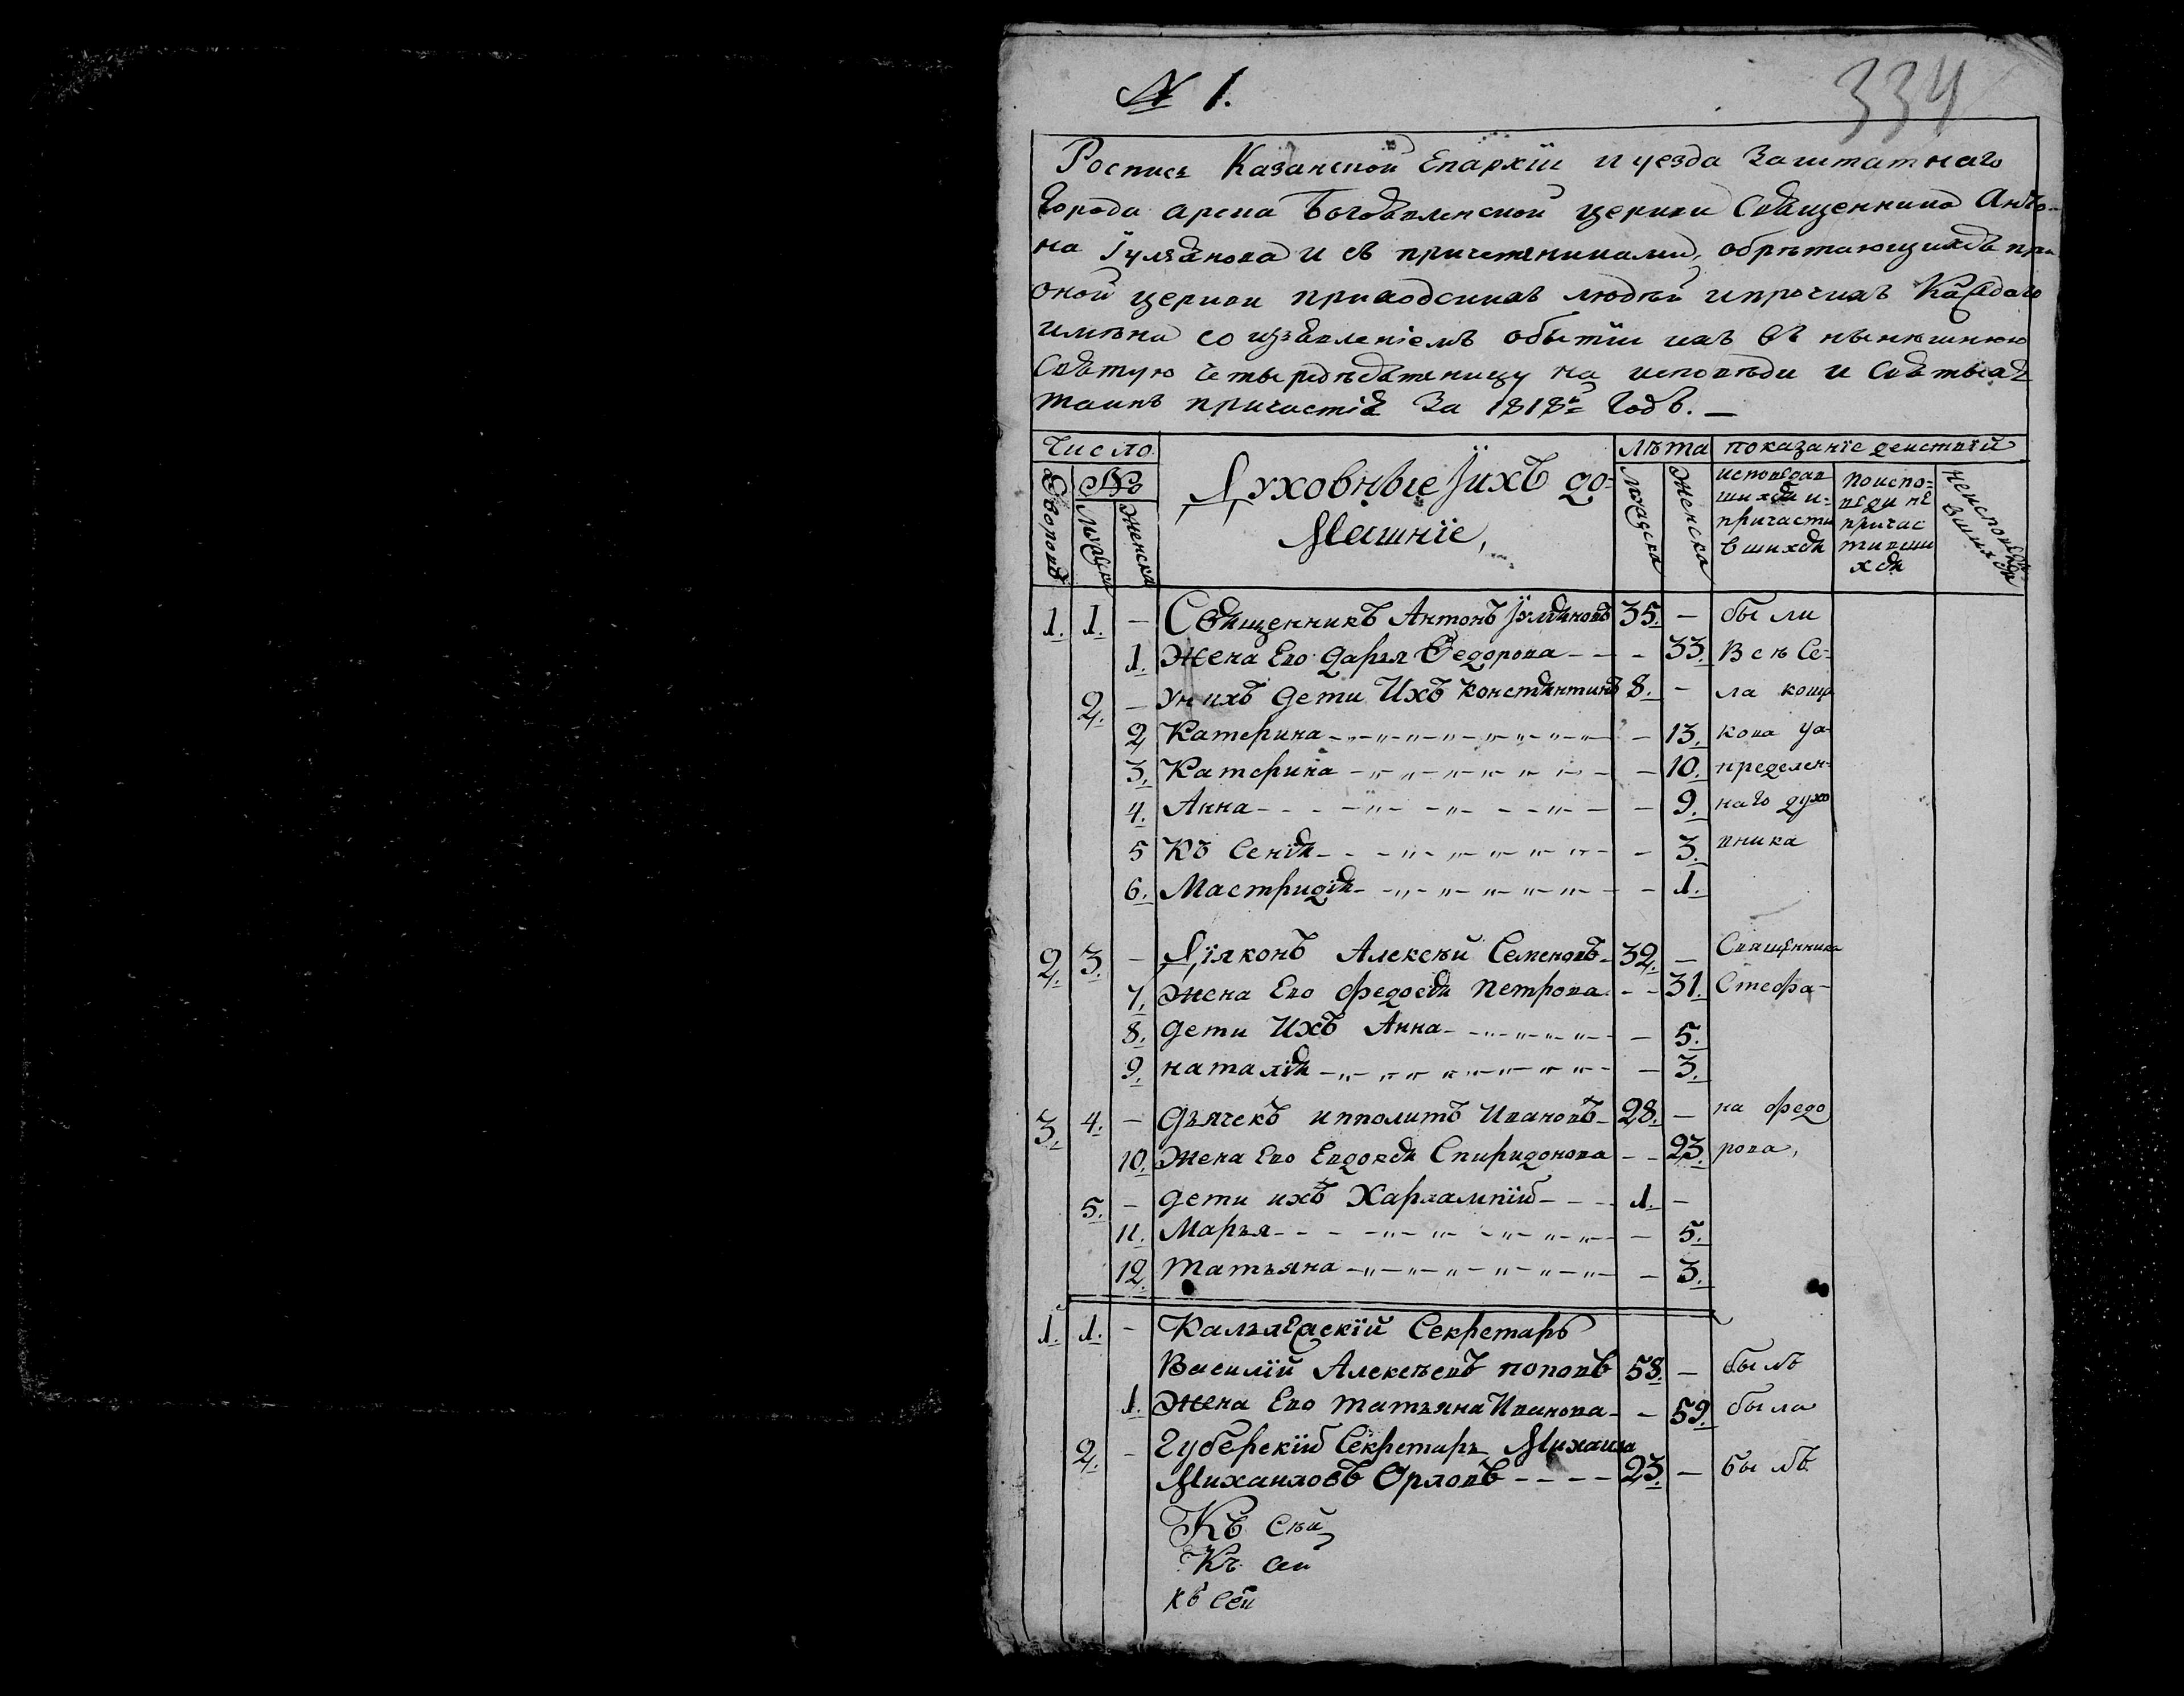 № 1.
334
Роспись Казанской Епархіи и уезда Заштатнаго
Города Арска Богоявленской церкви Священника Анто-
на Гулянова и съ причетниками, обрѣтающихся при
оной церкви приходскихъ людѣй и прочихъ Каждаго
имѣна со изъявленіемъ о бытіи ихъ въ нынѣшнюю
Святую четыредѣсятницу на исповѣди и Святыхъ
таинъ причастія За 1818й Годъ. —
Число Лѣта показаніе деиствій
Дворовъ № Мужска Женска
Духовные ихъ до=
Машніе,
Мужска Женска
исповѣдав
шихся и=
причасти
вшихся
по испо=
веди не
причас
тивши
хся
неисповѣда
вшихся
1. 1. — Священникъ Антонъ Гуляновъ 35. — были
1. Жена Ево Дарья Ѳедорова — — 33. В сѣ Се=
2. — у нихъ дети Ихъ Констянтинъ 8. — ла кощ
2 Катерина — 13. кова уа-
3. Катерина — 10. пределен=
4. Анна — 9. наго духо
5 Къ Сенія — 3. вника
6. Мастридія — 1.
2. 3. — Діяконъ Алексѣй Семеновъ 32. — Священника
7. Жена Ево Федосья Петрова — — 31. Стефа-
8. дети Ихъ Анна — 5.
9. наталія — 3.
3. 4. — Дьячекъ ипполитъ Ивановъ 28. — на федо
10. Жена Ево Евдокя Спиридонова — — 23. рова,
5. — дети ихъ Харлампій 1. —
11. Марья — 5.
12. Татьяна — 3.
1. 1. — Калѣяжскій Секретарь
Василій Алексѣевъ поповъ 58. — былъ
1. Жена Ево татьяна Иванова — — 59. была
2. — Губерскій Секретарь Михаила
Михаиловъ Орловъ — — — — 23. — былъ
Къ сѣй
Къ сеи
къ сеи